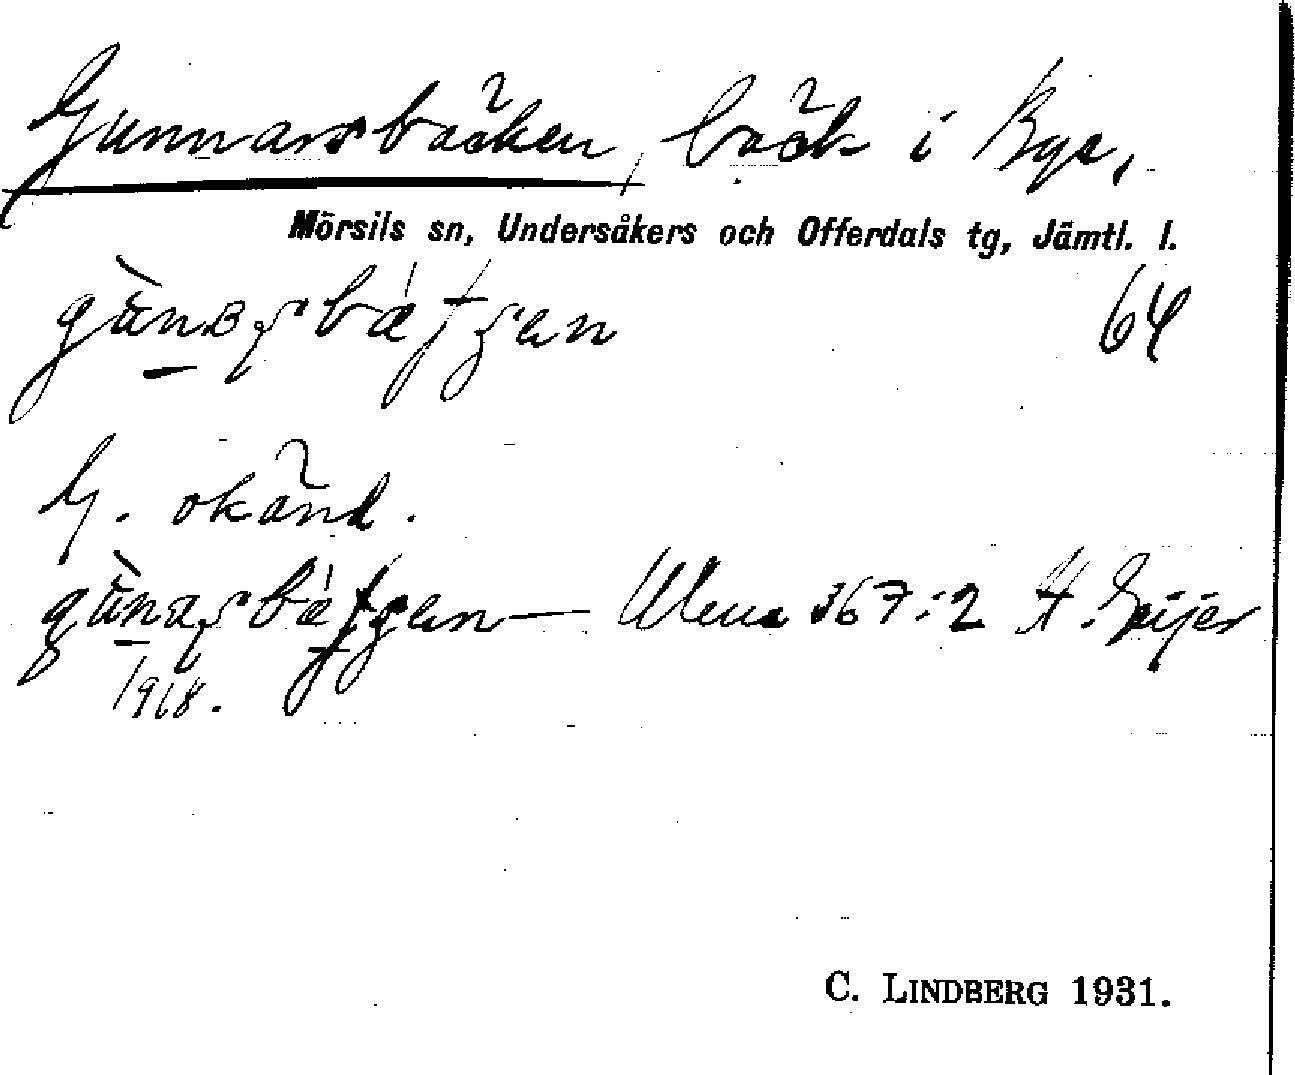 Gunnarsbäcken, bäck i Bye,
Mörsils sn, Undersåkers och Offerdals tg, Jämtl. l.
64
G. okänd.
Ulma 367:2 H. Geijer
1918.
C. LINDBERG 1931.